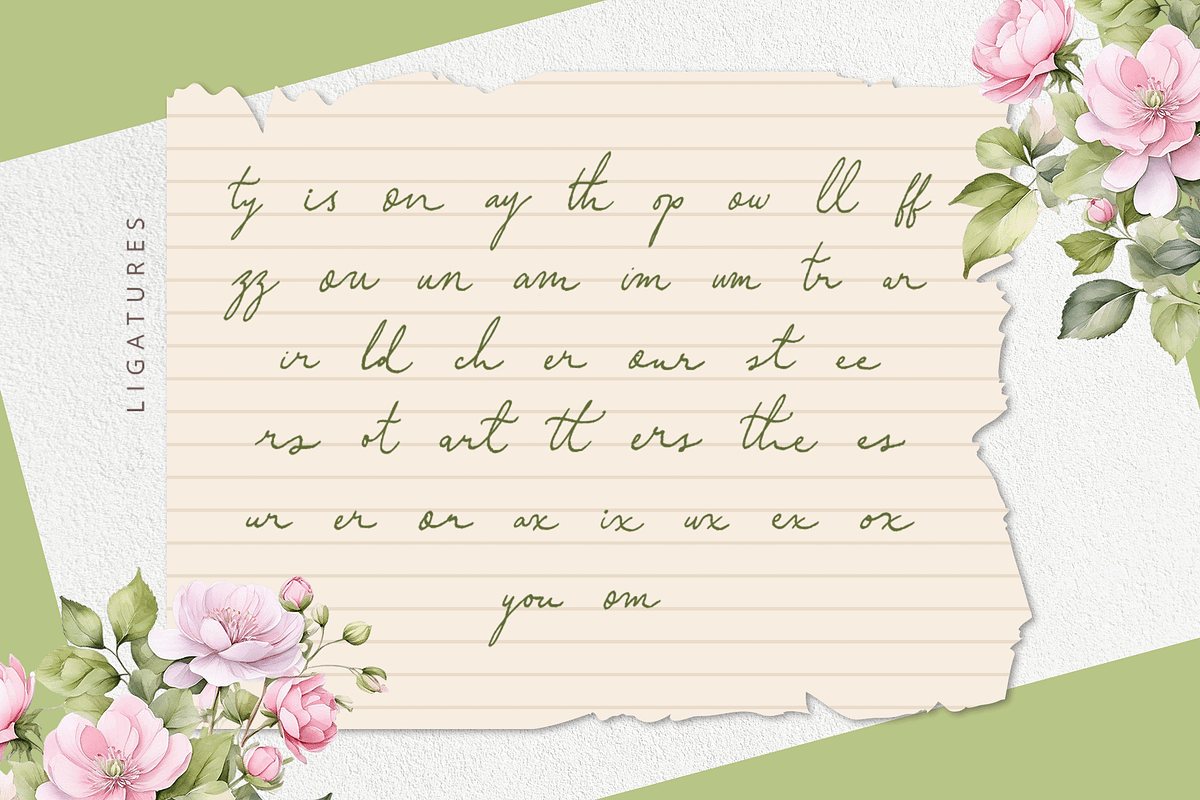 LIGATURES
ty is on ay th op ow ll ff
zz ou un am im um tr ar
ir ld ch er our st ee
rs ot art tt ers the es
ur er or ax ix ux ex ox
you om